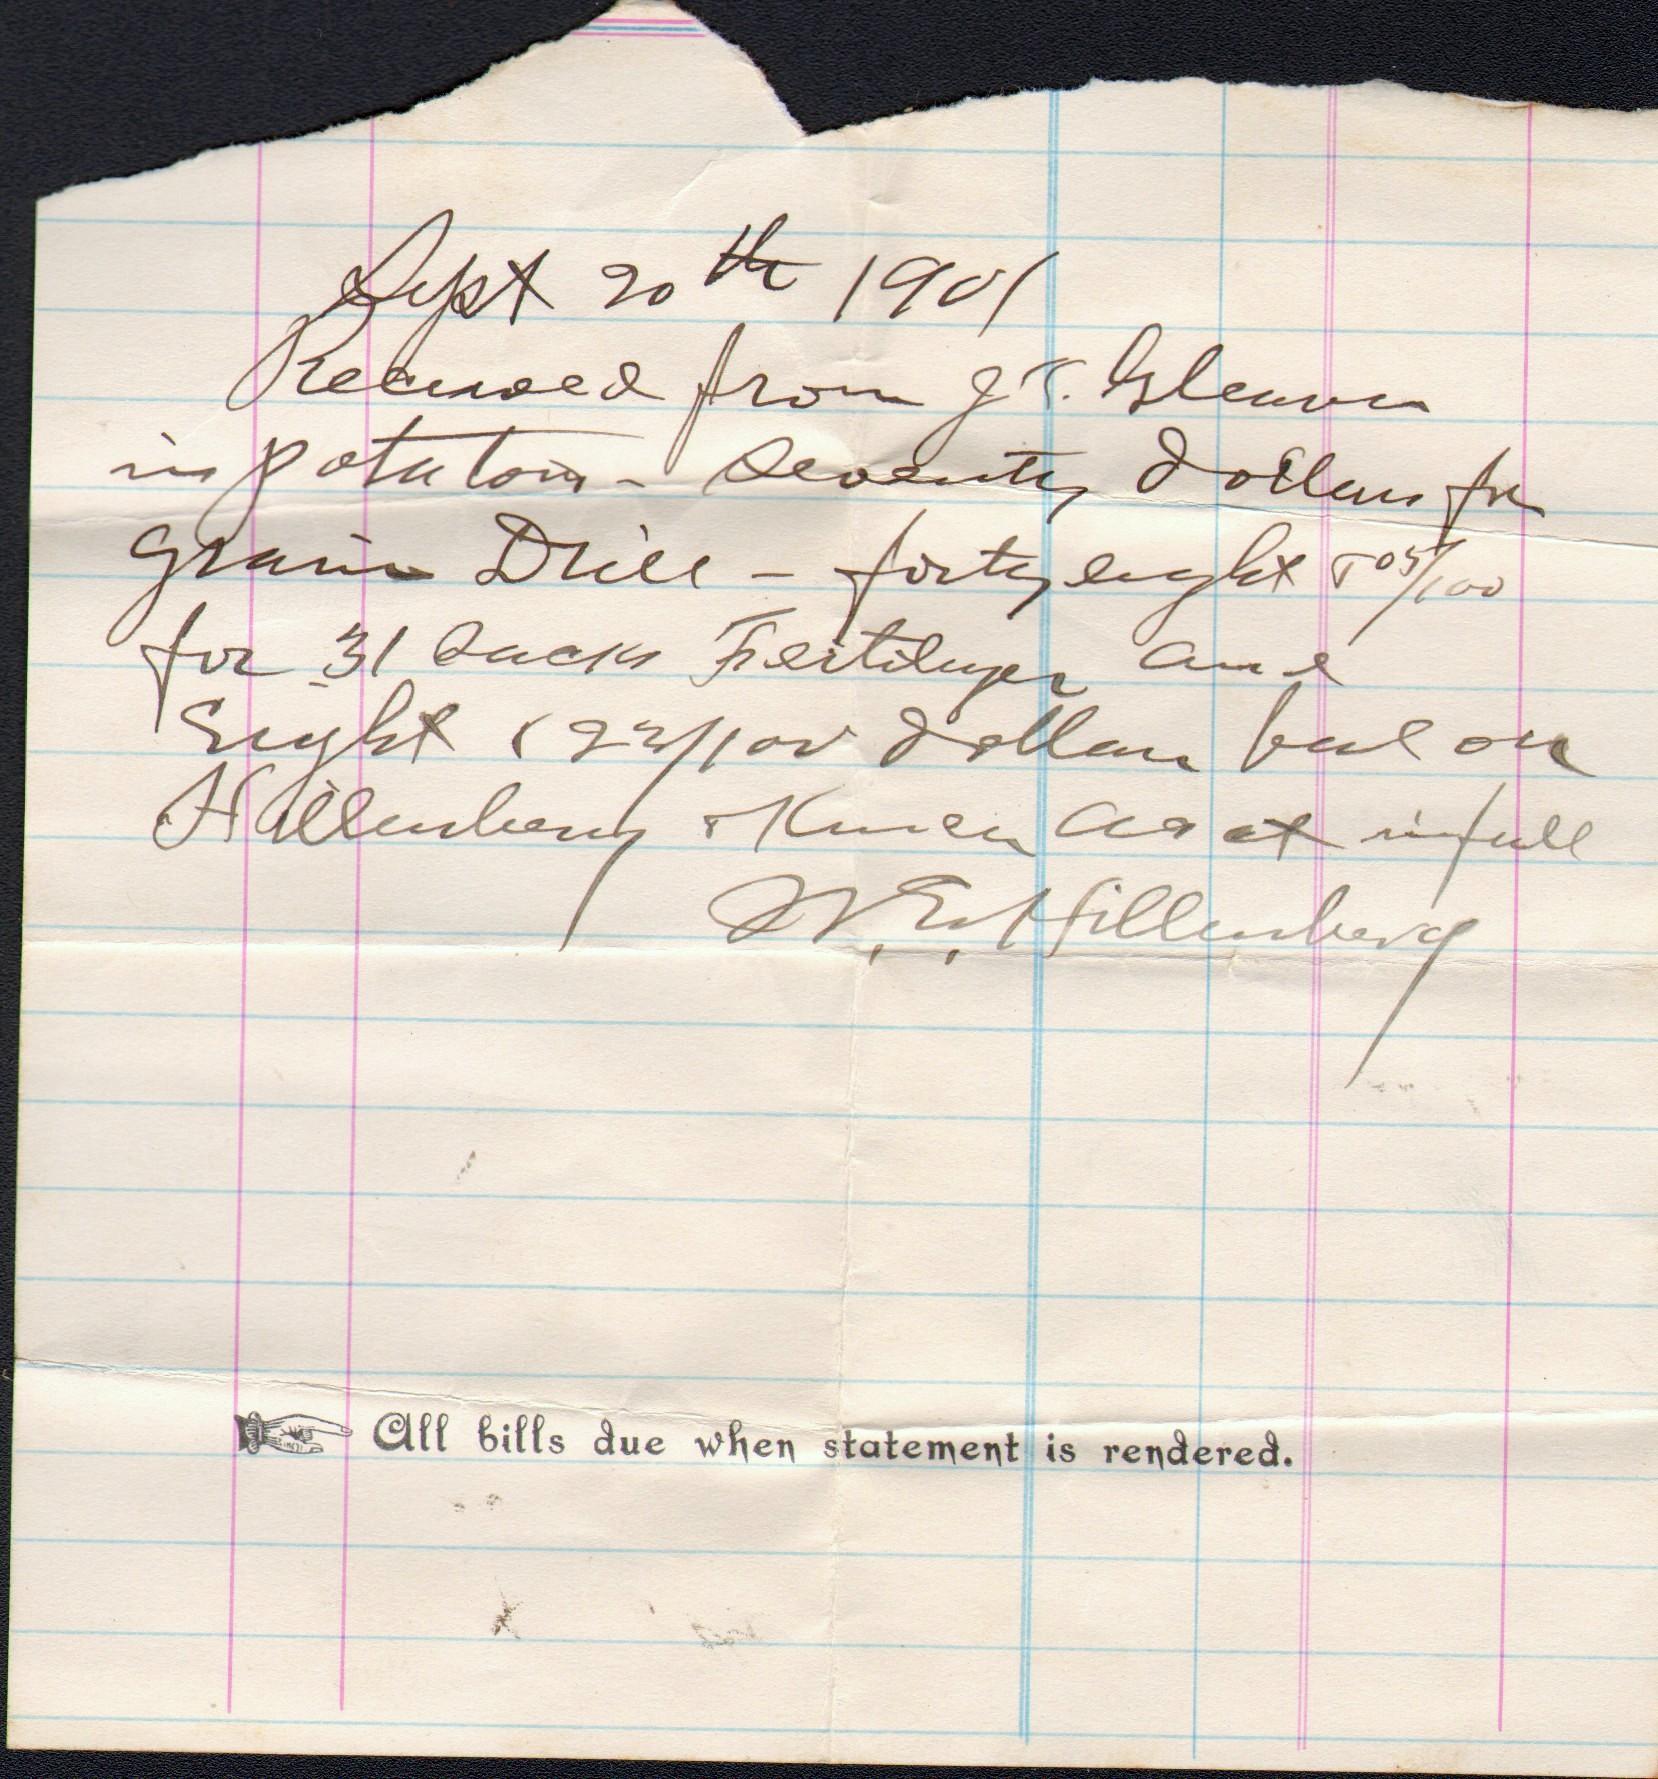 Sept 20th 1901
Received from J T. Gleaven
in potatoes - Seventy dollars for
Grain Drill - forty eight & 05/100
for 31 Sacks Fertilizer and
Eight & 22/100 dollars bal on
Hillenberg & acct in full
W. E. Hillenberg
All bills due when statement is rendered.